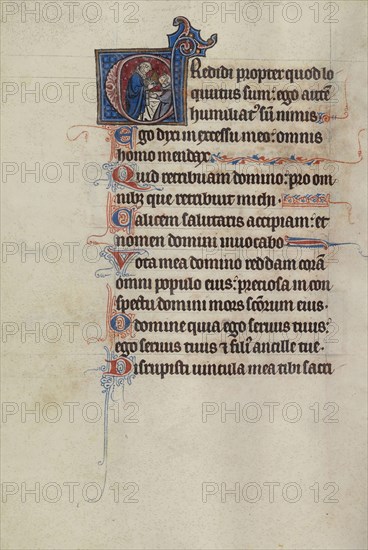 Credidi propter quod lo
quutus sum: ego autē
humiliat⁹ sū nimis
Ego dixi in excessu meo: omnis
homo mendax
Quid retribuam domino: pro om
nibz que retribuit michi
Calicem salutaris accipiam: et
nomen domini invocabo
Vota mea domino reddam corā
omni populo eius: preciosa in con
spectu domini mors scōrum eius
O domine quia ego servus tuus:
ego servus tuus ⁊ fili⁹ ancille tue
Dirupisti vincula mea tibi sacri
PHOTO 12